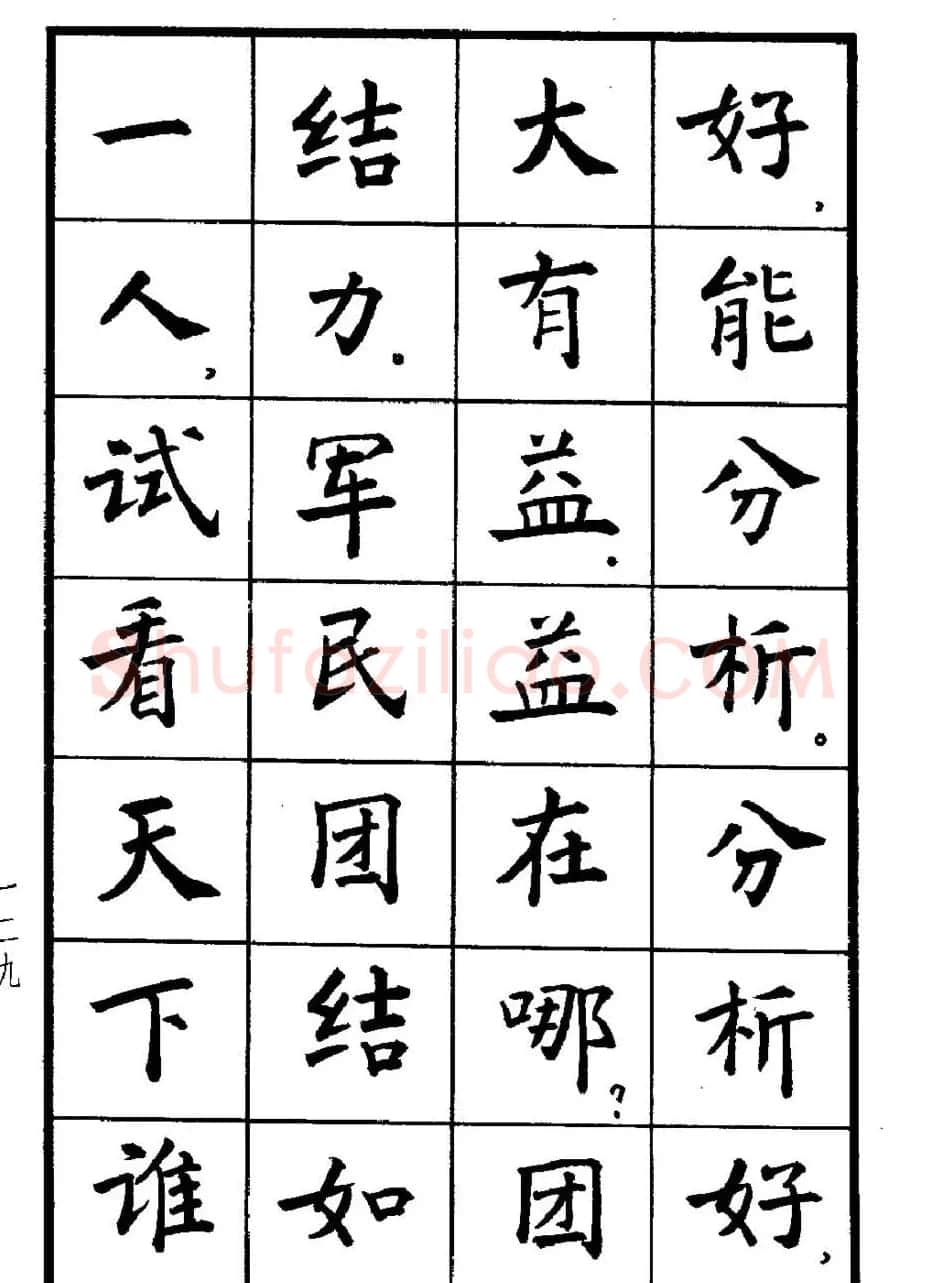 好，能分析。分析好，
大有益。益在哪？团
结力。军民团结如
一人，试看天下谁
一二九
Shufaziliao.COM